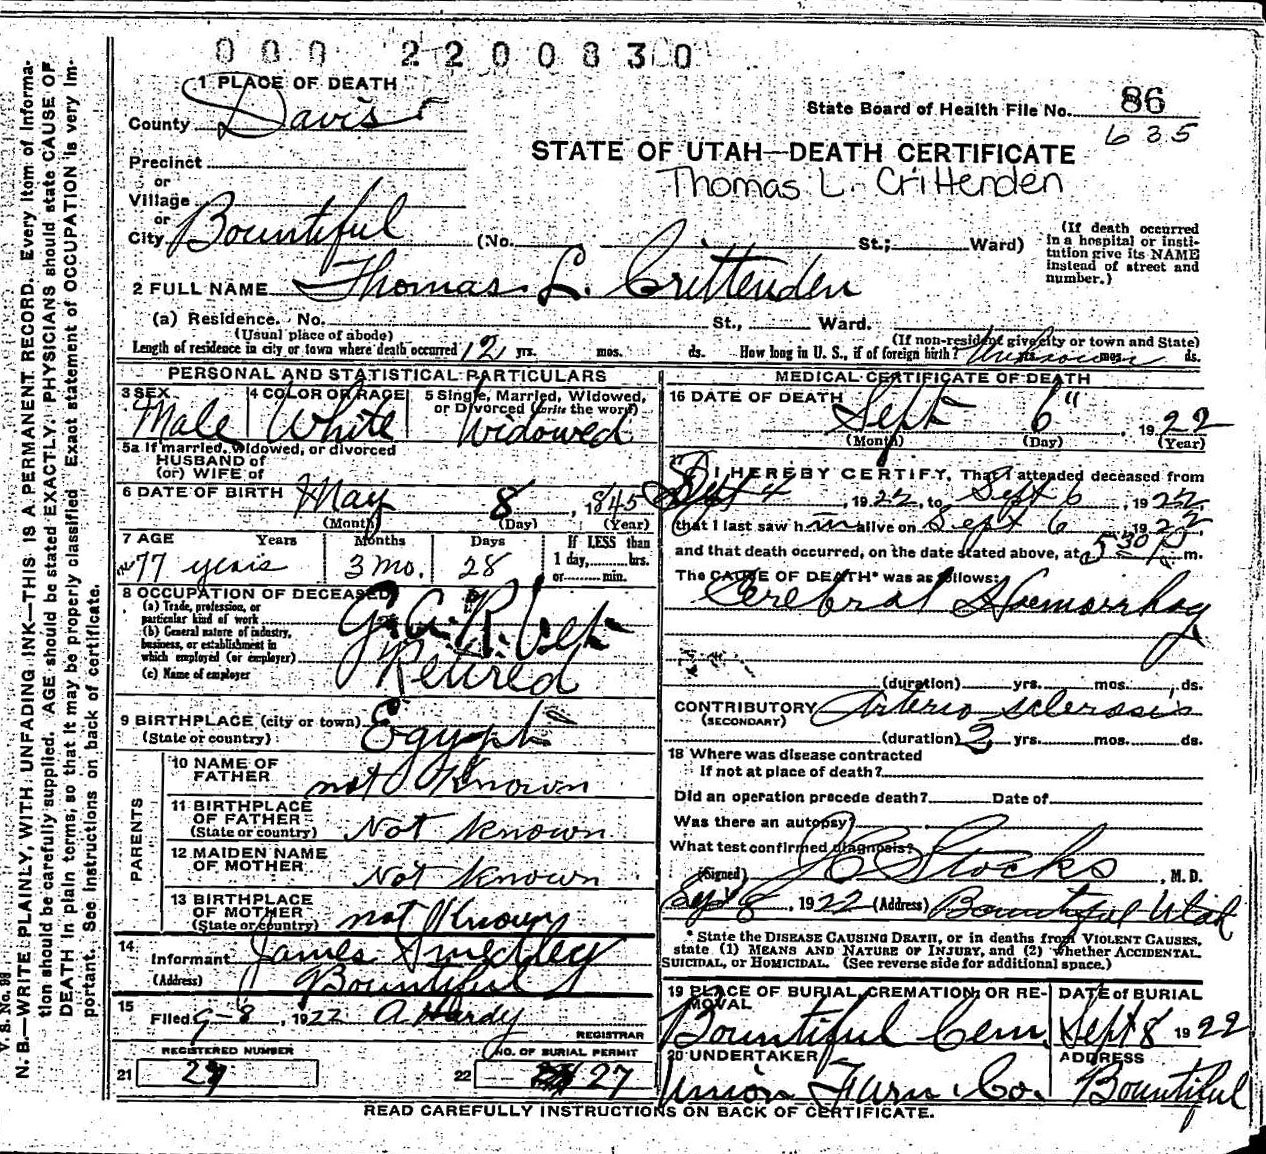 000 2200830
1 PLACE OF DEATH
County Davis
State Board of Health File No. 86
635
STATE OF UTAH—DEATH CERTIFICATE
Thomas L. Crittenden
Precinct
or
Village
or
City Bountiful (No. St.; Ward)
(If death occurred in a hospital or insti-
tution give its NAME instead of street and number.)
2 FULL NAME Thomas L. Crittenden
(a) Residence. No. St., Ward.
(Usual place of abode) (If non-resident give city or town and State)
Length of residence in city or town where death occurred 12 yrs. mos. ds. How long in U. S., if of foreign birth? Unknown mos. ds.
PERSONAL AND STATISTICAL PARTICULARS
3 SEX Male
4 COLOR OR RACE White
5 Single, Married, Widowed, or Divorced (write the word) Widowed
5a If married, widowed, or divorced
HUSBAND of
(or) WIFE of
6 DATE OF BIRTH May 8, 1845
(Month) (Day) (Year)
7 AGE Years Months Days If LESS than
77 years 3 mo. 28 1 day, hrs.
or min.
8 OCCUPATION OF DECEASED
(a) Trade, profession, or
particular kind of work G.A.R. Vet
(b) General nature of industry,
business, or establishment in
which employed (or employer) Retired
(c) Name of employer
9 BIRTHPLACE (city or town)
(State or country) Egypt
PARENTS
10 NAME OF FATHER not Known
11 BIRTHPLACE OF FATHER
(State or country) Not Known
12 MAIDEN NAME OF MOTHER Not Known
13 BIRTHPLACE OF MOTHER
(State or country) not Known
14
Informant James Smedley
(Address) Bountiful
15
Filed 9-8, 1922 A Hardy
REGISTRAR
REGISTERED NUMBER NO. OF BURIAL PERMIT
21 27 22 27
MEDICAL CERTIFICATE OF DEATH
16 DATE OF DEATH
Sept 6", 1922
(Month) (Day) (Year)
17 I HEREBY CERTIFY, That I attended deceased from
Sept 4, 1922, to Sept 6, 1922,
that I last saw him alive on Sept 6, 1922
and that death occurred, on the date stated above, at 5 30 P m.
The CAUSE OF DEATH* was as follows:
Cerebral Haemorrhag
(duration) yrs. mos. ds.
CONTRIBUTORY Arterio Sclerosis
(SECONDARY)
(duration) 2 yrs. mos. ds.
18 Where was disease contracted
If not at place of death?
Did an operation precede death? Date of
Was there an autopsy?
What test confirmed diagnosis?
(Signed) Stocks, M. D.
Sept 8, 1922 (Address) Bountiful Utah
* State the DISEASE CAUSING DEATH, or in deaths from VIOLENT CAUSES,
state (1) MEANS AND NATURE OF INJURY, and (2) whether ACCIDENTAL
SUICIDAL, or HOMICIDAL. (See reverse side for additional space.)
19 PLACE OF BURIAL, CREMATION, OR RE-
MOVAL
Bountiful Cem.
DATE of BURIAL
Sept 8 1922
20 UNDERTAKER
Union Furn Co.
ADDRESS
Bountiful
READ CAREFULLY INSTRUCTIONS ON BACK OF CERTIFICATE.
V. S. No. 98
N. B.—WRITE PLAINLY, WITH UNFADING INK—THIS IS A PERMANENT RECORD. Every item of informa-
tion should be carefully supplied. AGE should be stated EXACTLY. PHYSICIANS should state CAUSE OF
DEATH in plain terms, so that it may be properly classified. Exact statement of OCCUPATION is very im-
portant. See instructions on back of certificate.